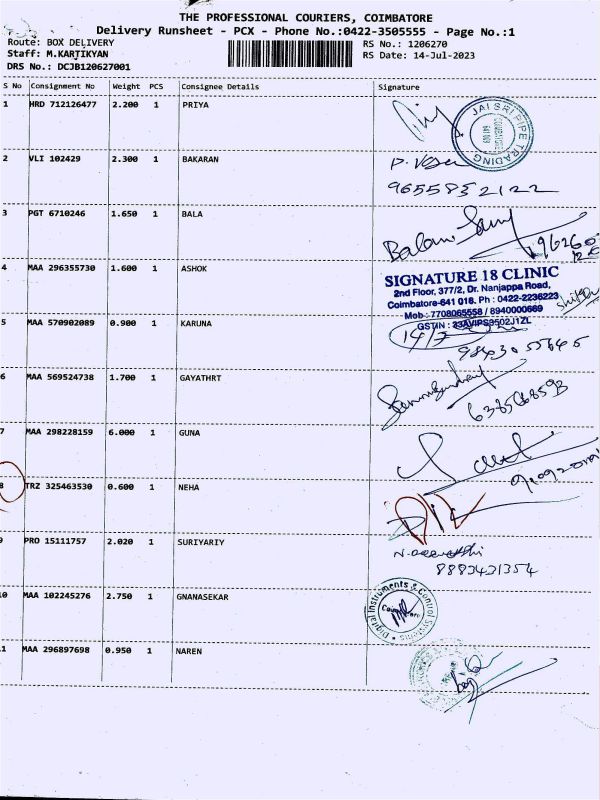 THE PROFESSIONAL COURIERS, COIMBATORE
Delivery Runsheet - PCX - Phone No.:0422-3505555 - Page No.:1
Route: BOX DELIVERY RS No.: 1206270
Staff: M.KARTIKYAN RS Date: 14-Jul-2023
DRS No.: DCJB120627001
S No Consignment No Weight PCS Consignee Details Signature
1 HRD 712126477 2.200 1 PRIYA
JAI SRI PIPE TRADING
COIMBATORE
2 VLI 102429 2.300 1 BAKARAN
9655832122
3 PGT 6710246 1.650 1 BALA
4 MAA 296355730 1.600 1 ASHOK
SIGNATURE 18 CLINIC
2nd Floor, 377/2, Dr. Nanjappa Road,
Coimbatore-641 018. Ph : 0422-2236223
Mob : 7708065558 / 8940000669
GSTIN : 33AVIPS3502J1ZL
5 MAA 570902089 0.900 1 KARUNA
6 MAA 569524738 1.700 1 GAYATHRT
7 MAA 298228159 6.000 1 GUNA
8 TRZ 325463530 0.600 1 NEHA
9 PRO 15111757 2.020 1 SURIYARIY
8883431354
10 MAA 102245276 2.750 1 GNANASEKAR
Digital Instruments & Control Systems
11 MAA 296897698 0.950 1 NAREN